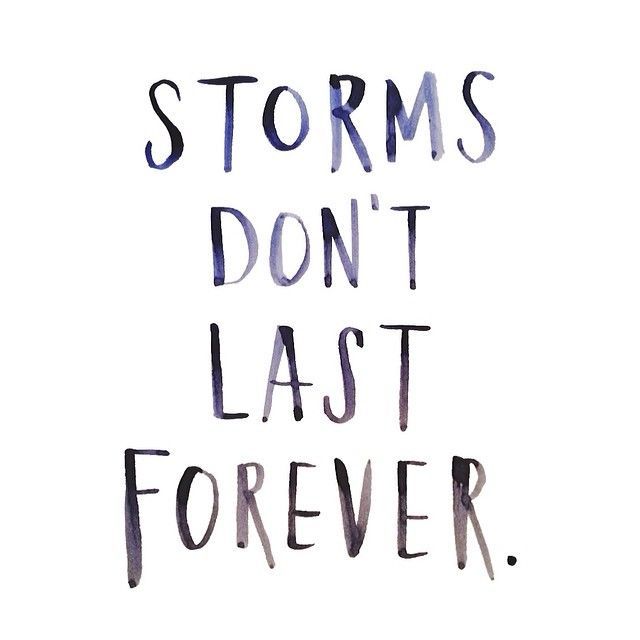 STORMS
DON'T
LAST
FOREVER.